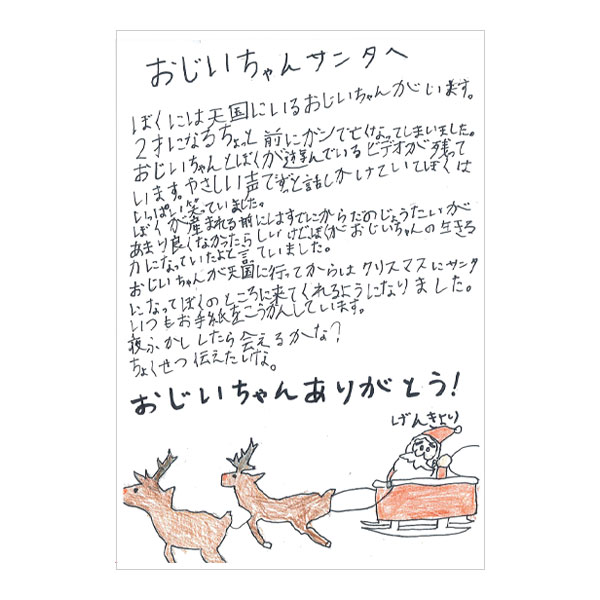 おじいちゃんサンタへ
ぼくには天国にいるおじいちゃんがいます。
2才になるちょっと前にガンで亡くなってしまいました。
おじいちゃんとぼくが遊んでいるビデオが残って
います。やさしい声でずっと話しかけていてぼくは
いっぱい笑っていました。
ぼくが産まれる前にはすでにからだのじょうたいが
あまり良くなかったらしいけどぼくがおじいちゃんの生きる
力になっていたよと言っていました。
おじいちゃんが天国に行ってからはクリスマスにサンタ
になってぼくのところに来てくれるようになりました。
いつもお手紙をこうかんしています。
夜ふかししたら会えるかな?
ちょくせつ伝えたいな。
おじいちゃんありがとう!
げんきより